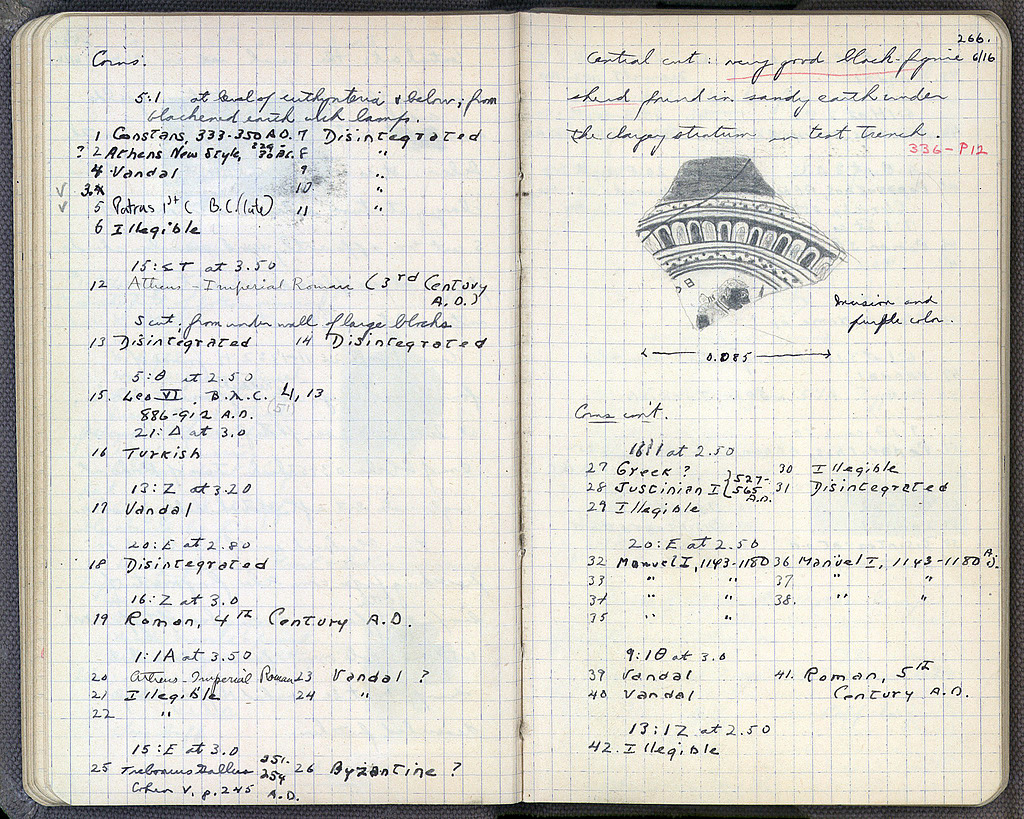 Coins:
5:1 at level of euthynteria & below; from
blackened earth with lamps.
1 Constans, 333-350 A.D. 7 Disintegrated
? 2 Athens New Style, 229-30 B.C. 8 "
4 Vandal 9 "
3. 10 "
5 Patras 1st C B.C. (late) 11 "
6 Illegible
15:ΣΤ at 3.50
12 Athens - Imperial Roman (3rd Century
A.D.)
S cut; from under wall of large blocks
13 Disintegrated 14 Disintegrated
5:Θ at 2.50
15. Leo VI. B.M.C. 4, 13
(51)
886-912 A.D.
21:Δ at 3.0
16 Turkish
13:Z at 3.20
17 Vandal
20:E at 2.80
18 Disintegrated
16:Z at 3.0
19 Roman, 4TH Century A.D.
1:1A at 3.50
20 Athens-Imperial Roman 23 Vandal ?
21 Illegible 24 "
22 "
15:E at 3.0
25 Trebonius Gallus 251-254 A.D. 26 Byzantine ?
Cohen V, p. 245
266.
6/16
Central cut: very good black-figure
sherd found in sandy earth under
the clayey stratum in test trench.
336-P12
Incision and
purple color.
0.085
Coins con't.
at 2.50
27 Greek ? 30 Illegible
28 Justinian I {527-565 A.D. 31 Disintegrated
29 Illegible
20:E at 2.50
32 Manuel I, 1143-1180 36 Manuel I, 1143-1180 A.D.
33 " " 37 " "
34 " " 38. " "
35 " "
9:1Θ at 3.0
39 Vandal 41. Roman, 5TH
40 Vandal Century A.D.
13:1Z at 2.50
42. Illegible